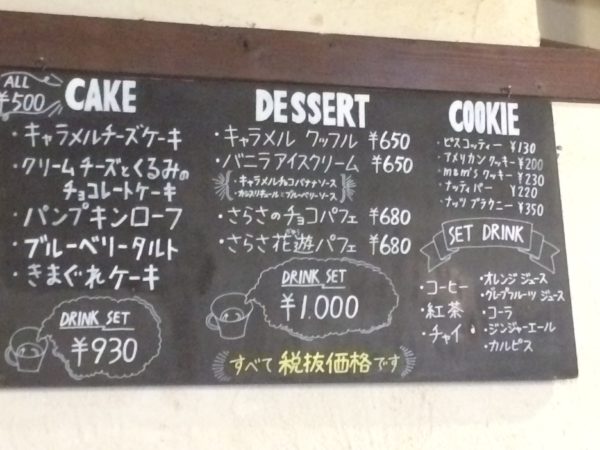 ALL
¥500
CAKE
・キャラメルチーズケーキ
・クリームチーズとくるみの
チョコレートケーキ
・パンプキンローフ
・ブルーベリータルト
・きまぐれケーキ
DRINK SET
¥930
DESSERT
・キャラメル クッフル ¥650
・バニラアイスクリーム ¥650
・キャラメルチョコバナナソース
・カシスリキュールとブルーベリーソース
・さらさのチョコパフェ ¥680
・さらさ花遊パフェ ¥680
DRINK SET
¥1.000
すべて税抜価格です
COOKIE
・ビスコッティー ¥130
・アメリカンクッキー ¥200
・m&m'sクッキー ¥230
・ナッティバー ¥220
・ナッツブラウニー ¥350
SET DRINK
・コーヒー
・紅茶
・チャイ
・オレンジジュース
・グレープフルーツジュース
・コーラ
・ジンジャーエール
・カルピス